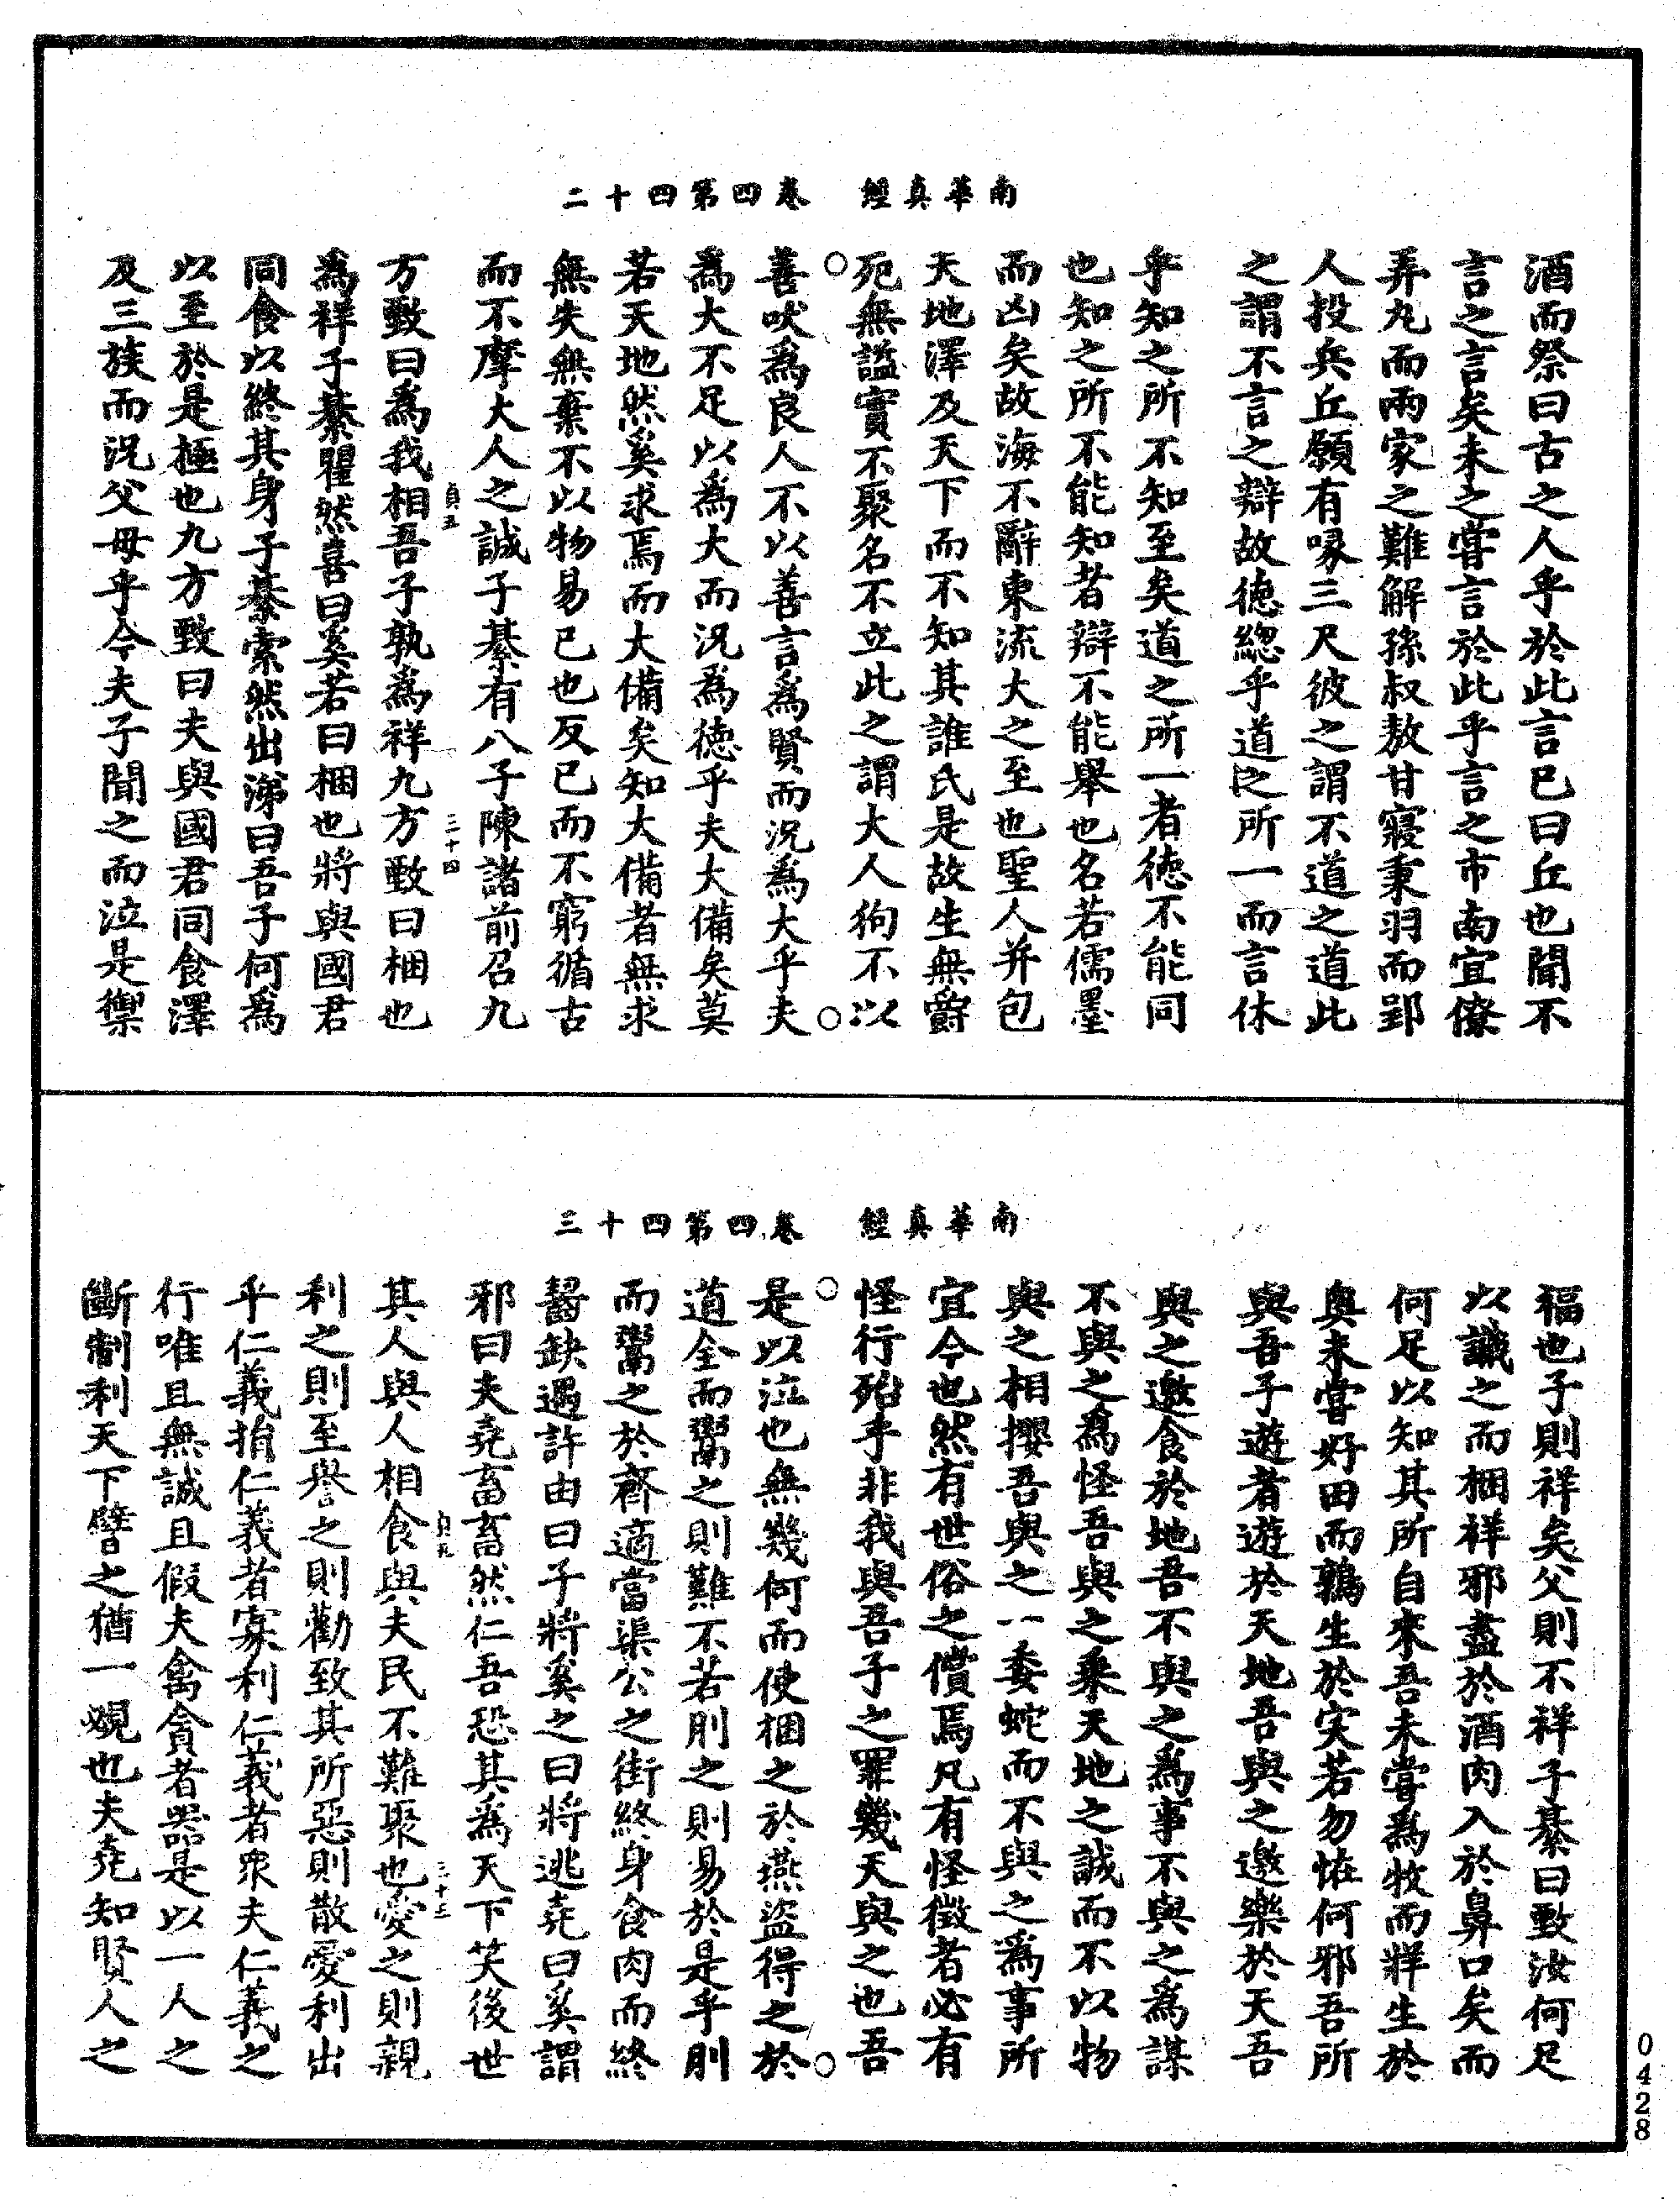 南華真經　卷四第四十二
酒而祭曰古之人乎於此言已曰丘也聞不
言之言矣未之嘗言於此乎言之市南宜僚
弄丸而兩家之難解孫叔敖甘寢秉羽而郢
人投兵丘願有喙三尺彼之謂不道之道此
之謂不言之辯故德總乎道之所一而言休
乎知之所不知至矣道之所一者德不能同
也知之所不能知者辯不能舉也名若儒墨
而凶矣故海不辭東流大之至也聖人并包
天地澤及天下而不知其誰氏是故生無爵
死無謚實不聚名不立此之謂大人狗不以
善吠為良人不以善言為賢而況為大乎夫
為大不足以為大而況為德乎夫大備矣莫
若天地然奚求焉而大備矣知大備者無求
無失無棄不以物易己也反己而不窮循古
而不摩大人之誠子綦有八子陳諸前召九
貞五　三十四
方歅曰為我相吾子孰為祥九方歅曰梱也
為祥子綦瞿然喜曰奚若曰梱也將與國君
同食以終其身子綦索然出涕曰吾子何為
以至於是極也九方歅曰夫與國君同食澤
及三族而況父母乎今夫子聞之而泣是禦
南華真經　卷四第四十三
福也子則祥矣父則不祥子綦曰歅汝何足
以識之而梱祥邪盡於酒肉入於鼻口矣而
何足以知其所自來吾未嘗為牧而牂生於
奧未嘗好田而鶉生於宎若勿怪何邪吾所
與吾子遊者遊於天地吾與之邀樂於天吾
與之邀食於地吾不與之為事不與之為謀
不與之為怪吾與之乘天地之誠而不以物
與之相攖吾與之一委蛇而不與之為事所
宜今也然有世俗之償焉凡有怪徵者必有
怪行殆乎非我與吾子之罪幾天與之也吾
是以泣也無幾何而使梱之於燕盜得之於
道全而鬻之則難不若刖之則易於是乎刖
而鬻之於齊適當渠公之街終身食肉而終
齧缺遇許由曰子將奚之曰將逃堯曰奚謂
邪曰夫堯畜畜然仁吾恐其為天下笑後世
其人與人相食與夫民不難聚也愛之則親
利之則至譽之則勸致其所惡則散愛利出
乎仁義捐仁義者寡利仁義者眾夫仁義之
行唯且無誠且假夫禽貪者器是以一人之
斷制利天下譬之猶一覕也夫堯知賢人之
0428